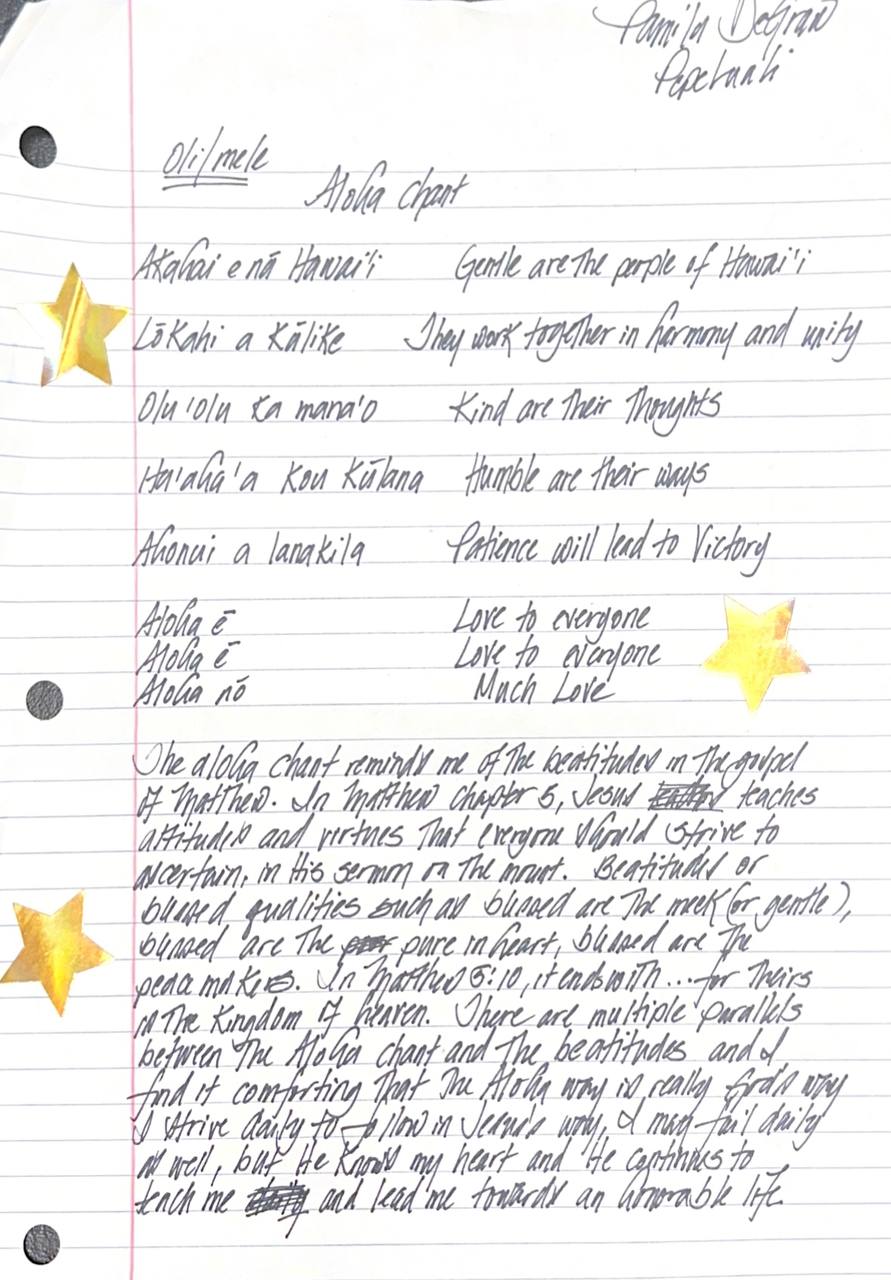 Oli/mele
Aloha chant
Akahai e nā Hawai'i Gentle are the people of Hawai'i
Lōkahi a Kālike They work together in harmony and unity
Olu'olu ka mana'o Kind are their Thoughts
Ha'aha'a kou Kūlana Humble are their ways
Ahonui a lanakila Patience will lead to Victory
Aloha ē Love to everyone
Aloha ē Love to everyone
Aloha nō Much Love
The aloha chant reminds me of the beatitudes in the gospel
of Matthew. In Matthew chapter 5, Jesus teaches
attitudes and virtues that everyone should strive to
ascertain, in His sermon on the mount. Beatitudes or
blessed qualities such as blessed are the meek (or gentle),
blessed are the pure in heart, blessed are the
peace makers. In Matthew 5:10, it ends with... for theirs
is the Kingdom of heaven. There are multiple parallels
between the Aloha chant and the beatitudes and I
find it comforting that the Aloha way is really God's way
I strive daily to follow in Jesus's way, I may fail daily
as well, but He knows my heart and He continues to
teach me and lead me towards an honorable life.